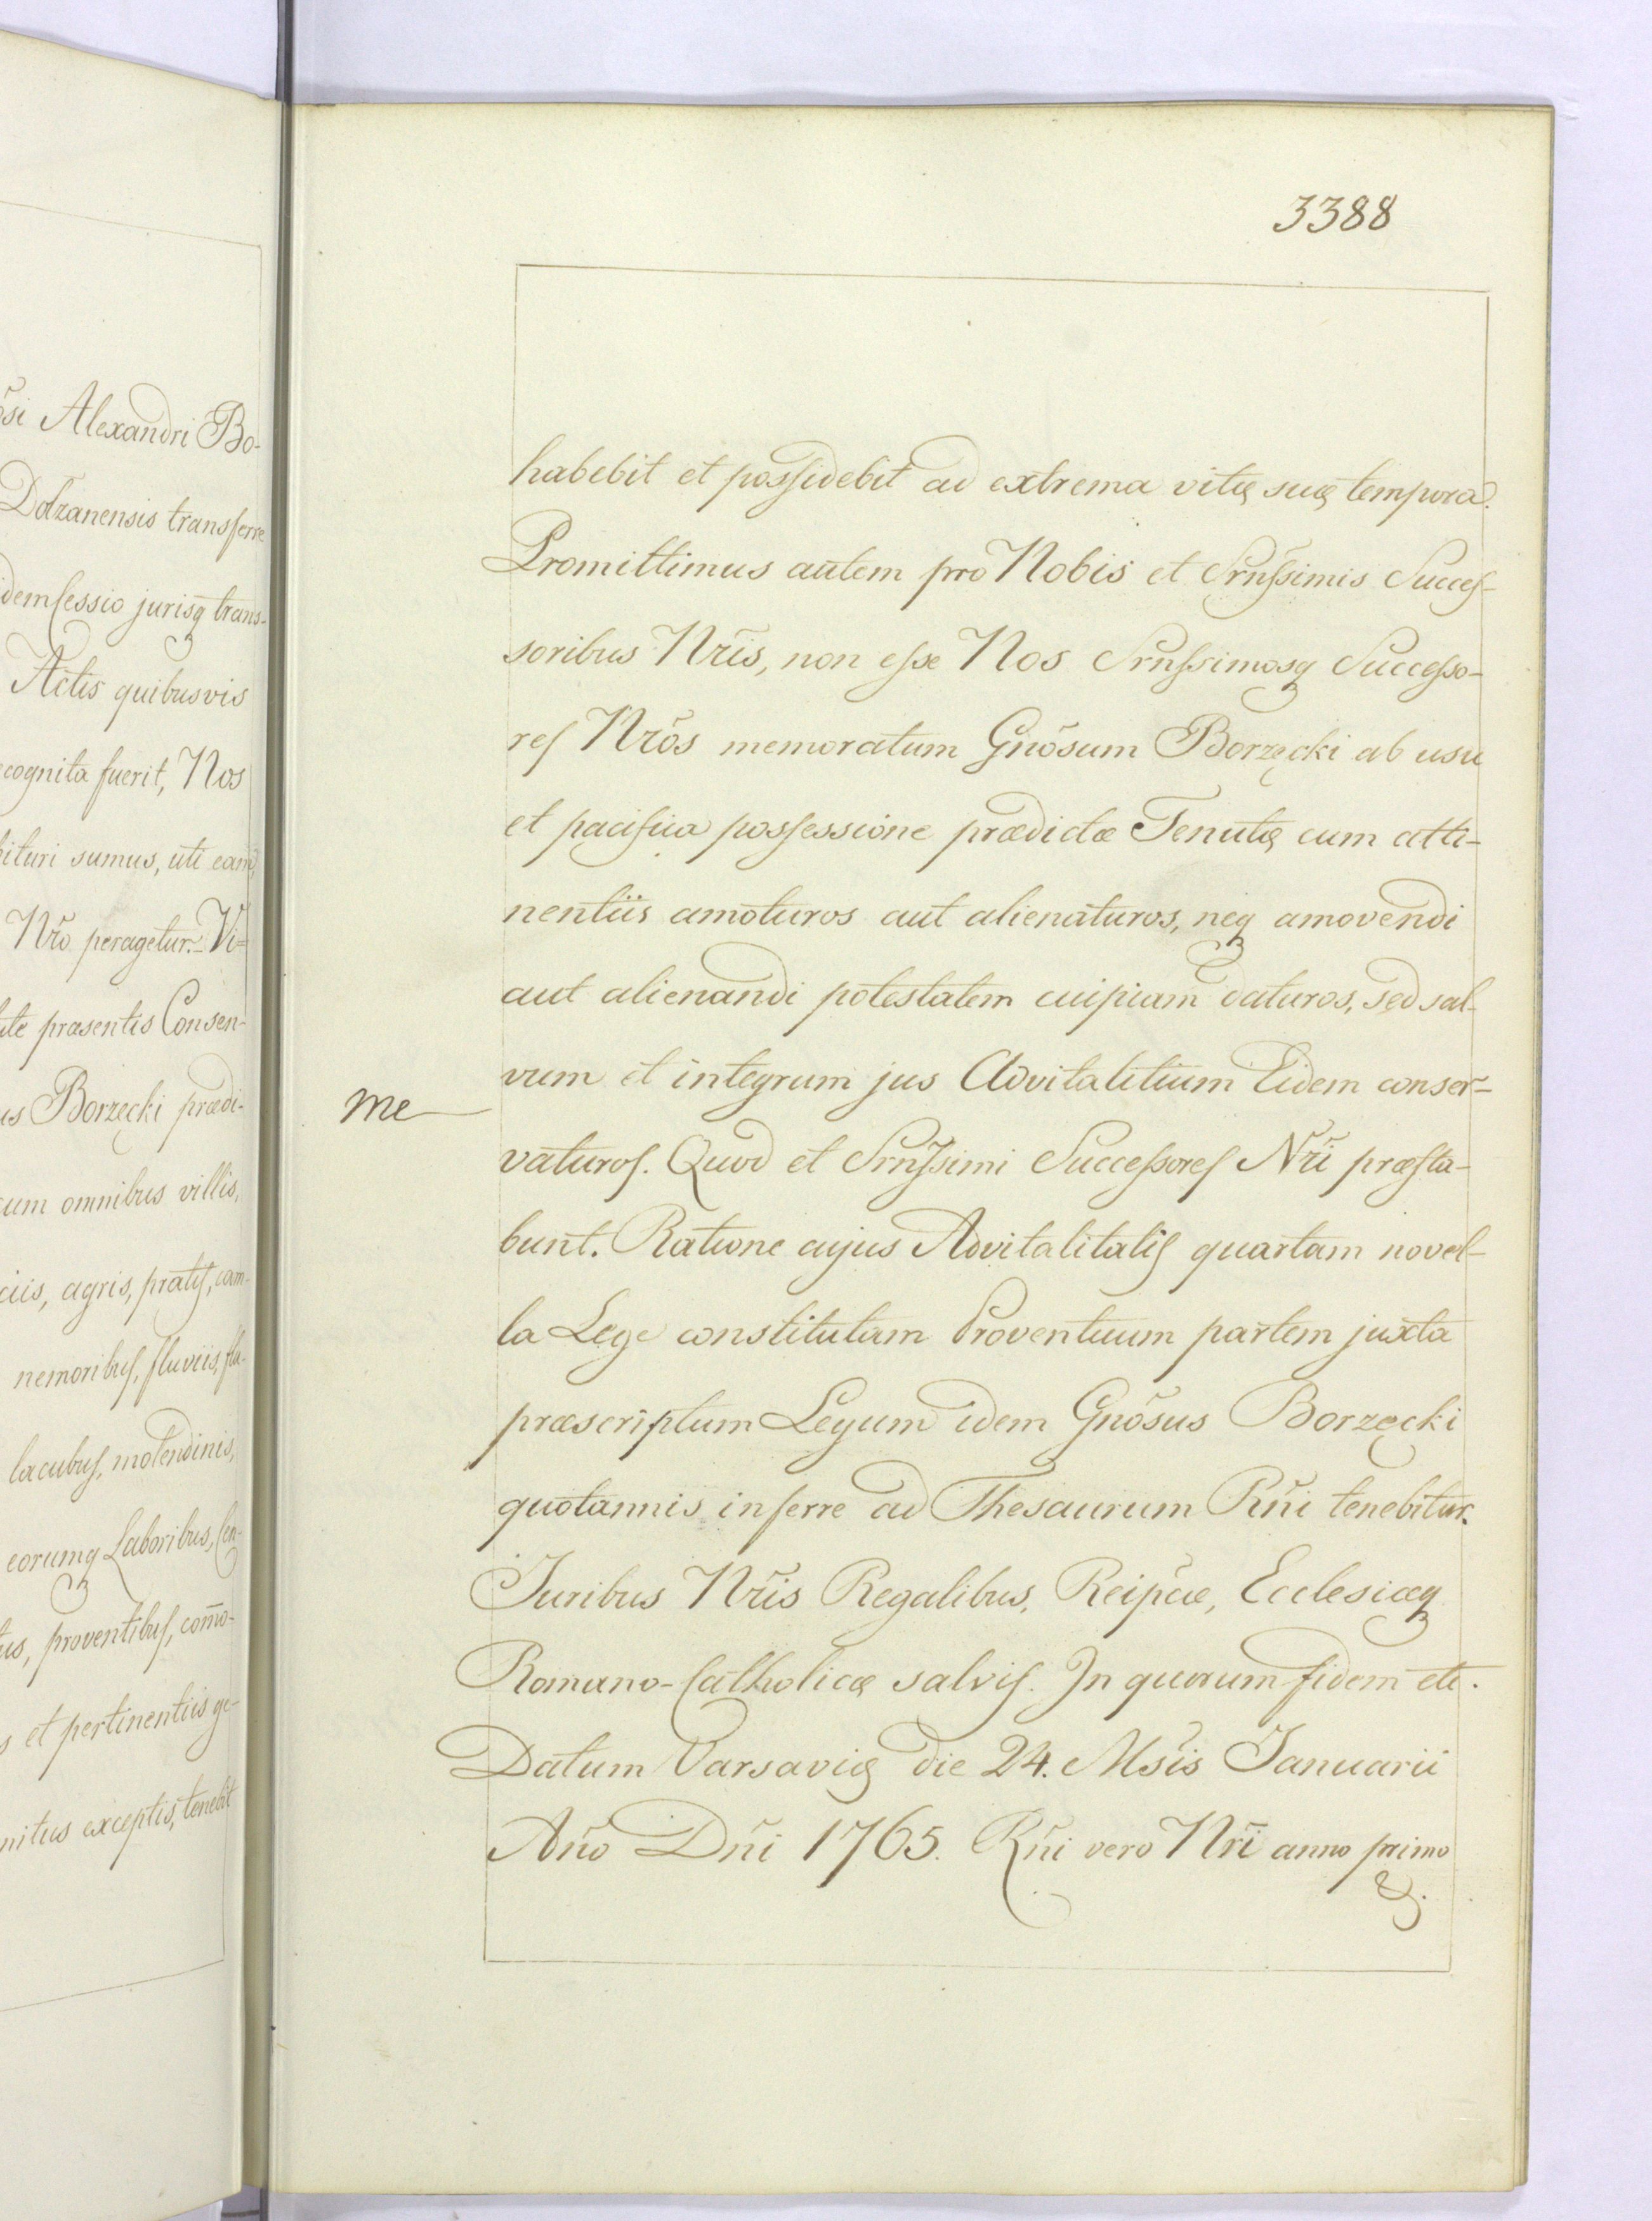 õsi Alexandri Bo-
Dolzanensis transferre
idem cessio jurisq trans-
Actis quibusvis
cognita fuerit, Nos
bituri sumus, uti eam
Nrõ peragetur. Vi=
ute præsentis Consen-
us Borzęcki prædi-
cum omnibus villis,
ciis, agris, pratis, cam-
nemoribus, fluviis, flu-
lacubus, molendinis,
eorumq Laboribus, Cen-
us, proventibus, com̃o-
s et pertinentiis ge-
nitus exceptis, tenebit
3388
habebit et possidebit ad extrema vitę suę tempora.
Promittimus autem pro Nobis et Srñssimis Succes-
soribus Nrĩs, non esse Nos Srñssimosq Successo-
res Nrõs memoratum Gnõsum Borzęcki ab usu
et pacifica possessione prædictæ Tenutę cum atti-
nentiis amoturos aut alienaturos, neq amovendi
aut alienandi potestatem cuipiam daturos, sed sal-
vum et integrum jus Advitalitium Eidem conser-
me
vaturos. Quod et Srñssimi Successores Nrĩ præsta-
bunt. Ratione cujus Advitalitatis quartam novel-
la Lege constitutam Proventuum partem juxta
præscriptum Legum idem Gnõsus Borzęcki
quotannis inferre ad Thesaurum Rñi tenebitur.
Juribus Nrĩs Regalibus, Reipc̃æ, Ecclesiæq
Romano-Catholicæ salvis. In quorum fidem etc.
Datum Varsavię die 24. Msĩs Januarii
Año Dñi 1765. Rñi vero Nrĩ anno primo
&.